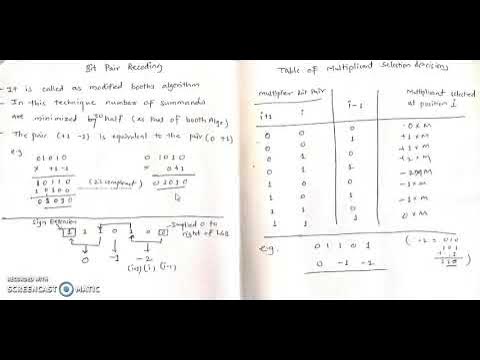 Bit Pair Recoding
- It is called as modified booths algorithm
- In this technique number of summands
are minimized by half (as that of booth Algo)
- The pair (+1 -1) is equivalent to the pair (0 +1)
e.g
01010
× +1-1
10110
10100
01010
(2's complement)
0 1010
× 0+1
01010
Sign Extension
1 1 1 0 1 0 0
Implied 0 to
right of LSB
0 -1 -2
(i+1) (i) (i-1)
Table of Multiplicand Selection decisions
Multiplier Bit Pair
Multiplicand selected
at position i
i+1 i i-1
0 0 0 0×M
0 0 1 +1×M
0 1 0 +1×M
0 1 1 +2×M
1 0 0 -2×M
1 0 1 -1×M
1 1 0 -1×M
1 1 1 0×M
e.g.
0 1 1 0 1
0 -1 -2
-2 = 010
101
110
RECORDED WITH
SCREENCAST MATIC